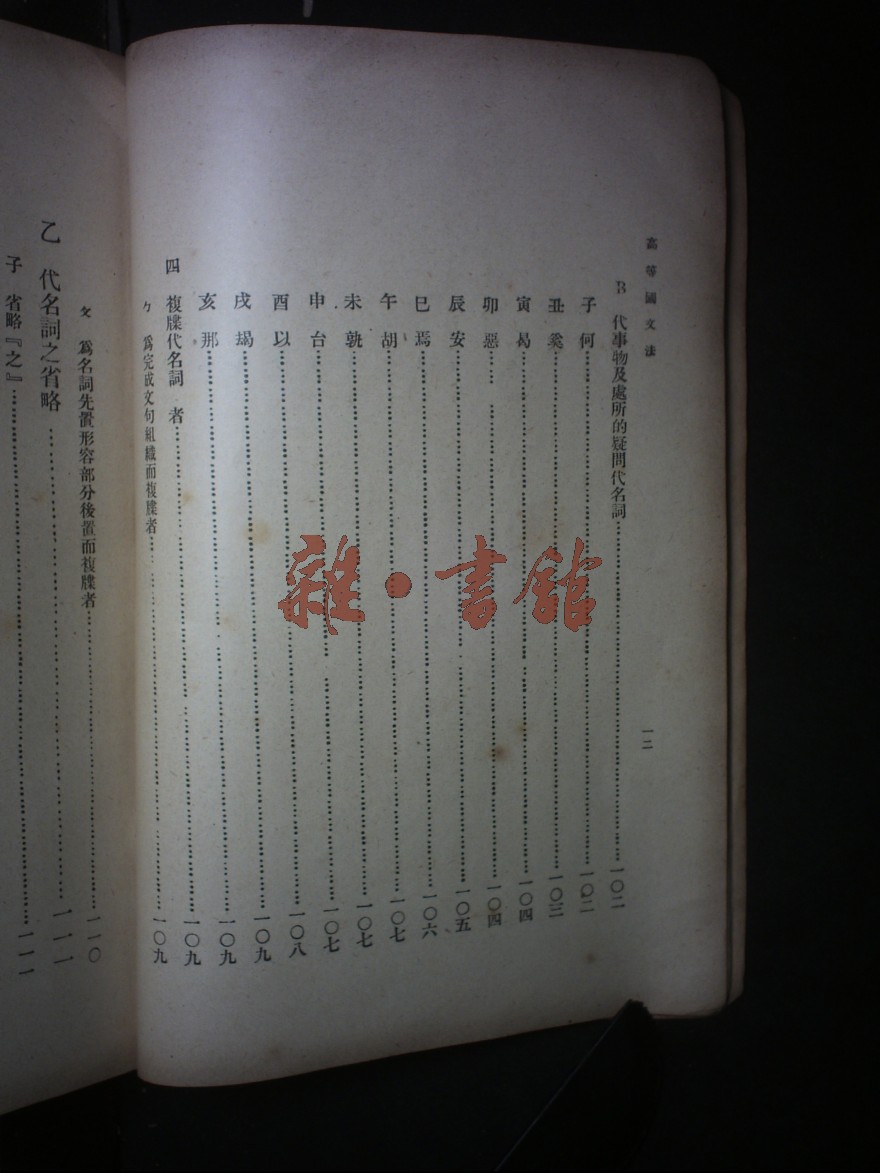 高等國文法
一二
B 代事物及處所的疑問代名詞……一〇二
子 何……一〇二
丑 奚……一〇三
寅 曷……一〇四
卯 惡……一〇四
辰 安……一〇五
巳 焉……一〇六
午 胡……一〇七
未 孰……一〇七
申 台……一〇七
酉 以……一〇八
戌 朅……一〇九
亥 那……一〇九
四 複牒代名詞 者……一〇九
ㄅ 爲完成文句組織而複牒者……一〇九
ㄆ 爲名詞先置形容部分後置而複牒者……一一〇
乙 代名詞之省略……一一一
子 省略『之』……一一一
雜·書館